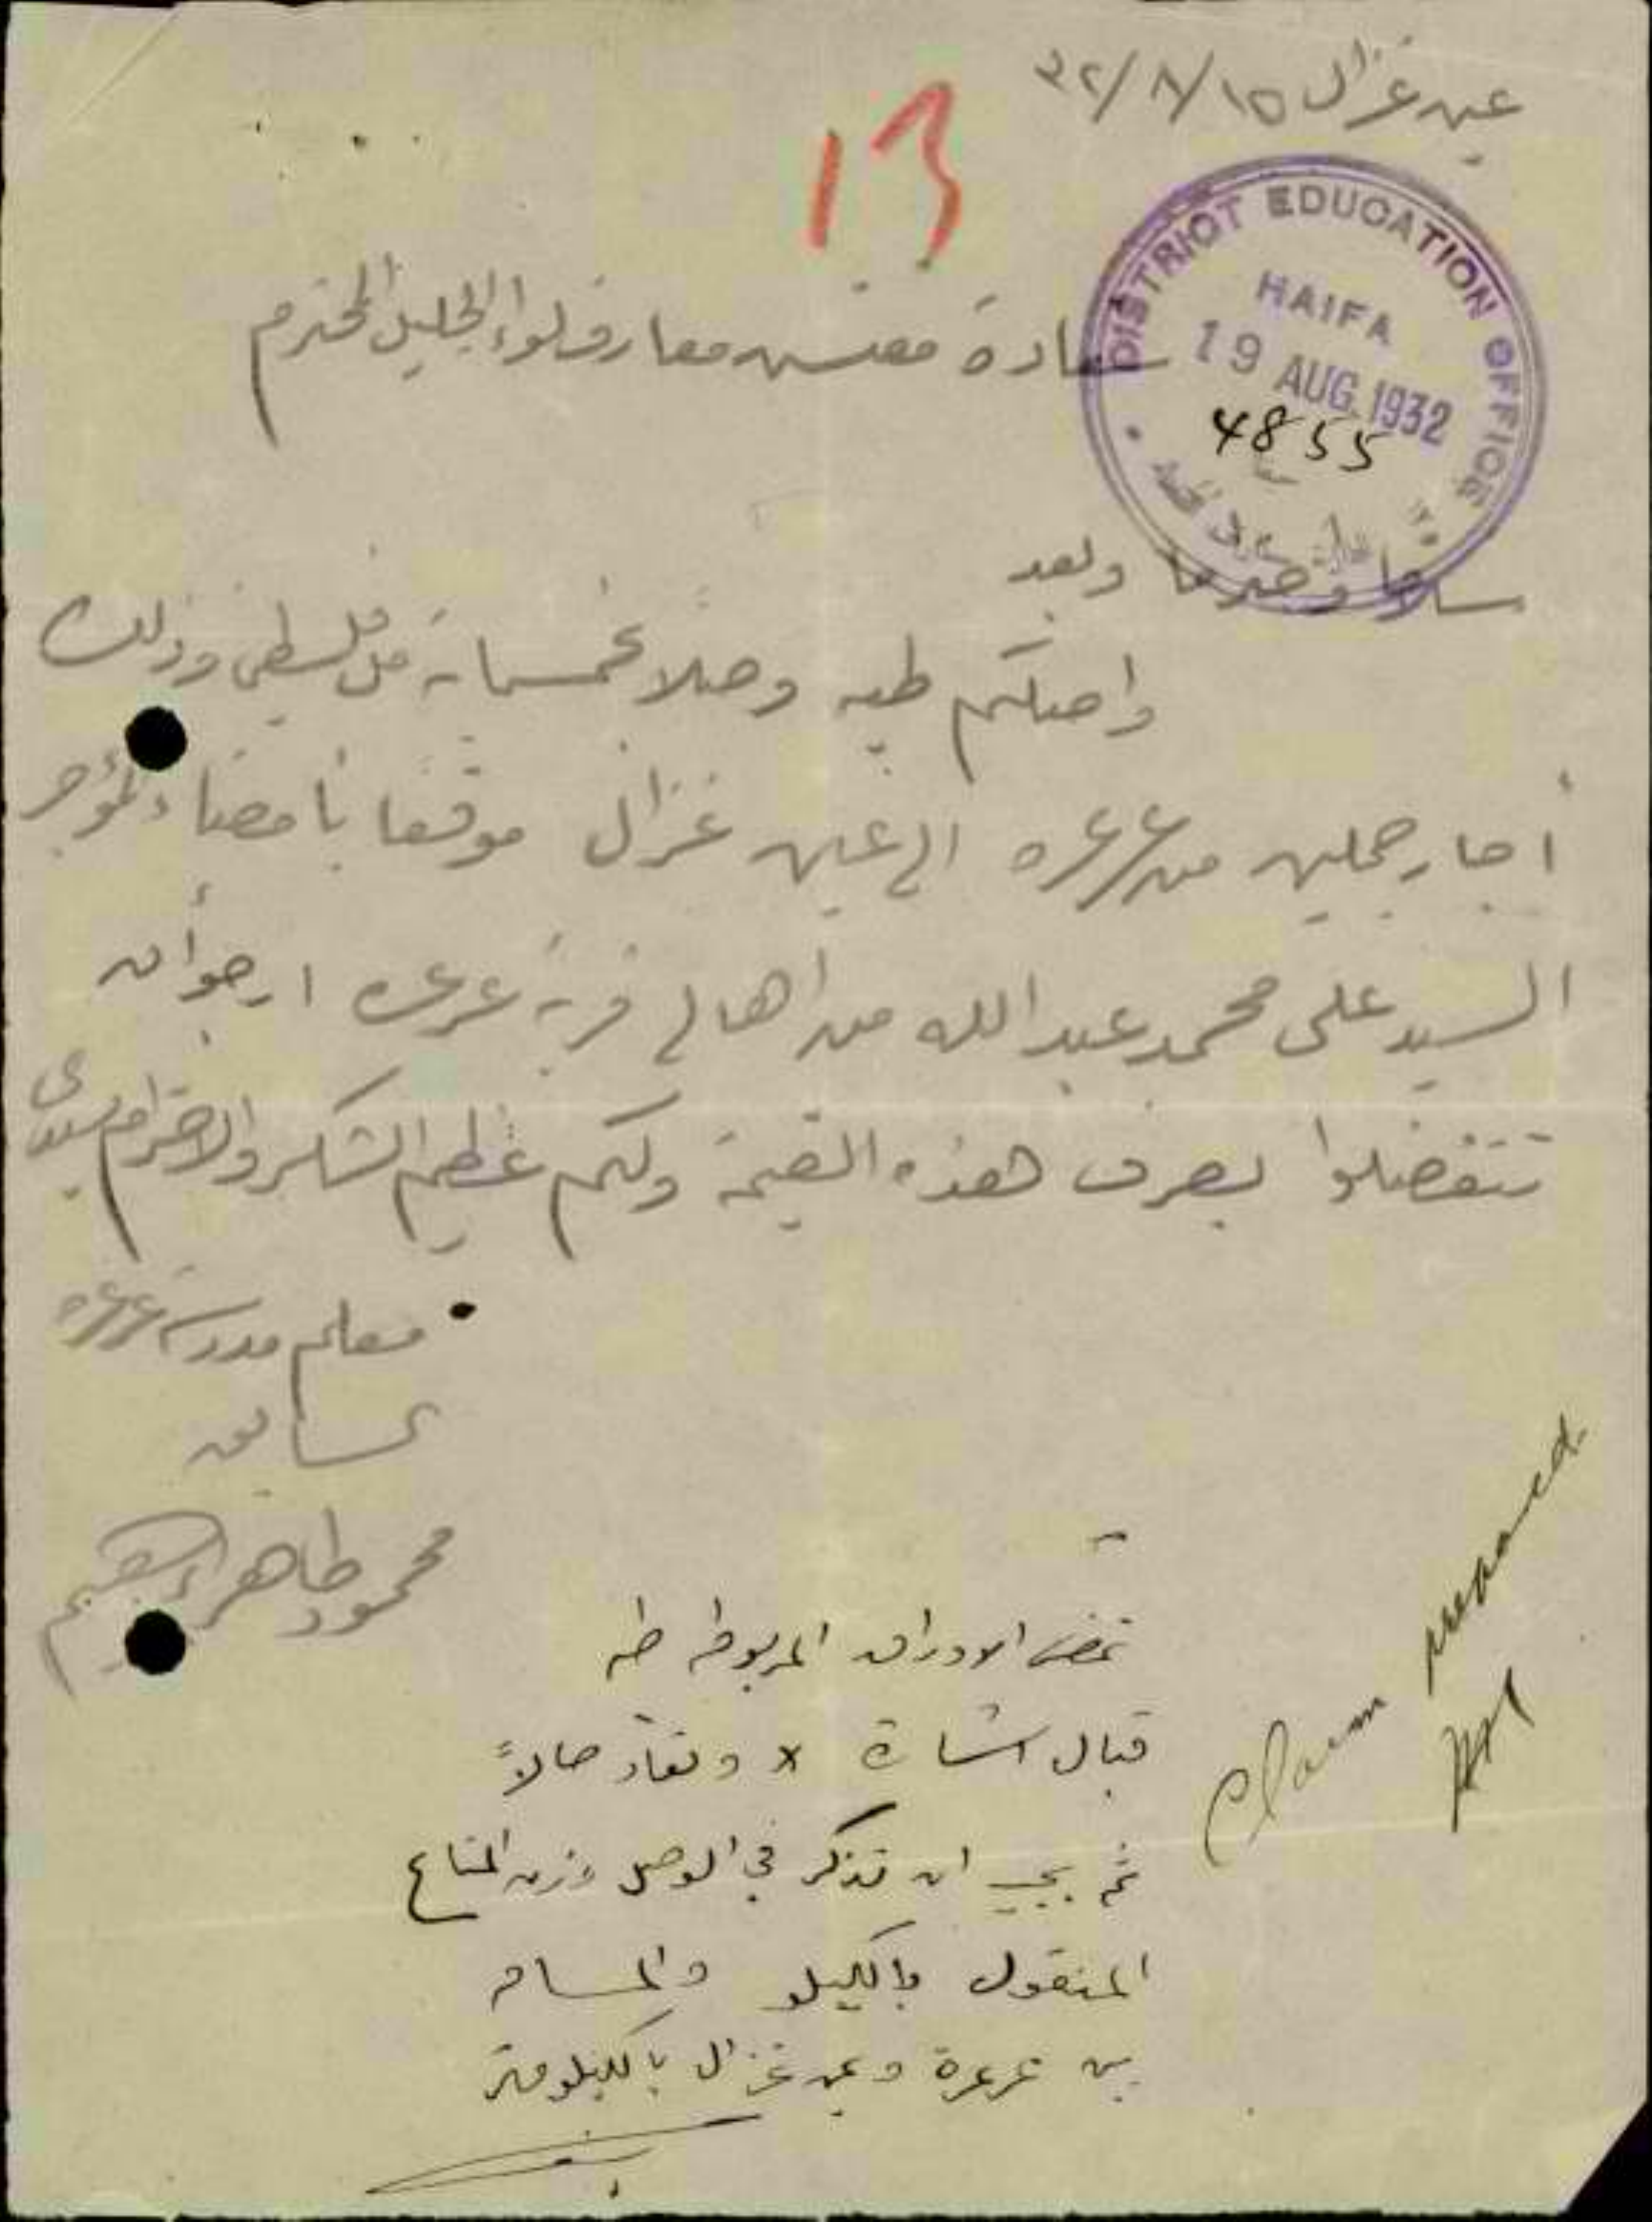 عين غزال ١٥/٨/٣٢
13
DISTRICT EDUCATION OFFICE
HAIFA
19 AUG 1932
4855
سعادة مفتش معارف لواء الجليل المحترم
سلاما واحتراما وبعد
واصلكم طيه وصلا بخمسماية مل فلسطيني وذلك
أجار جملين من عرعره الى عين غزال موقعا بامضاء المؤجر
السيد على محمد عبد الله من اهالي قرية عرعره ارجو أن
تتفضلوا بصرف هذه القيمة ولكم عظيم الشكر والاحترام سيدي
معلم مدرسة عرعره
السابق
محمود طاهر
تمضى الاوراق المربوطه طيه
قبال اشارة x وتعاد حالاً
ثم يجب ان تذكر في الوصل وزن المتاع
المنقول بالكيلو والمسافه
بين عرعرة وعين غزال بالكيلومتر
Claim prepared.